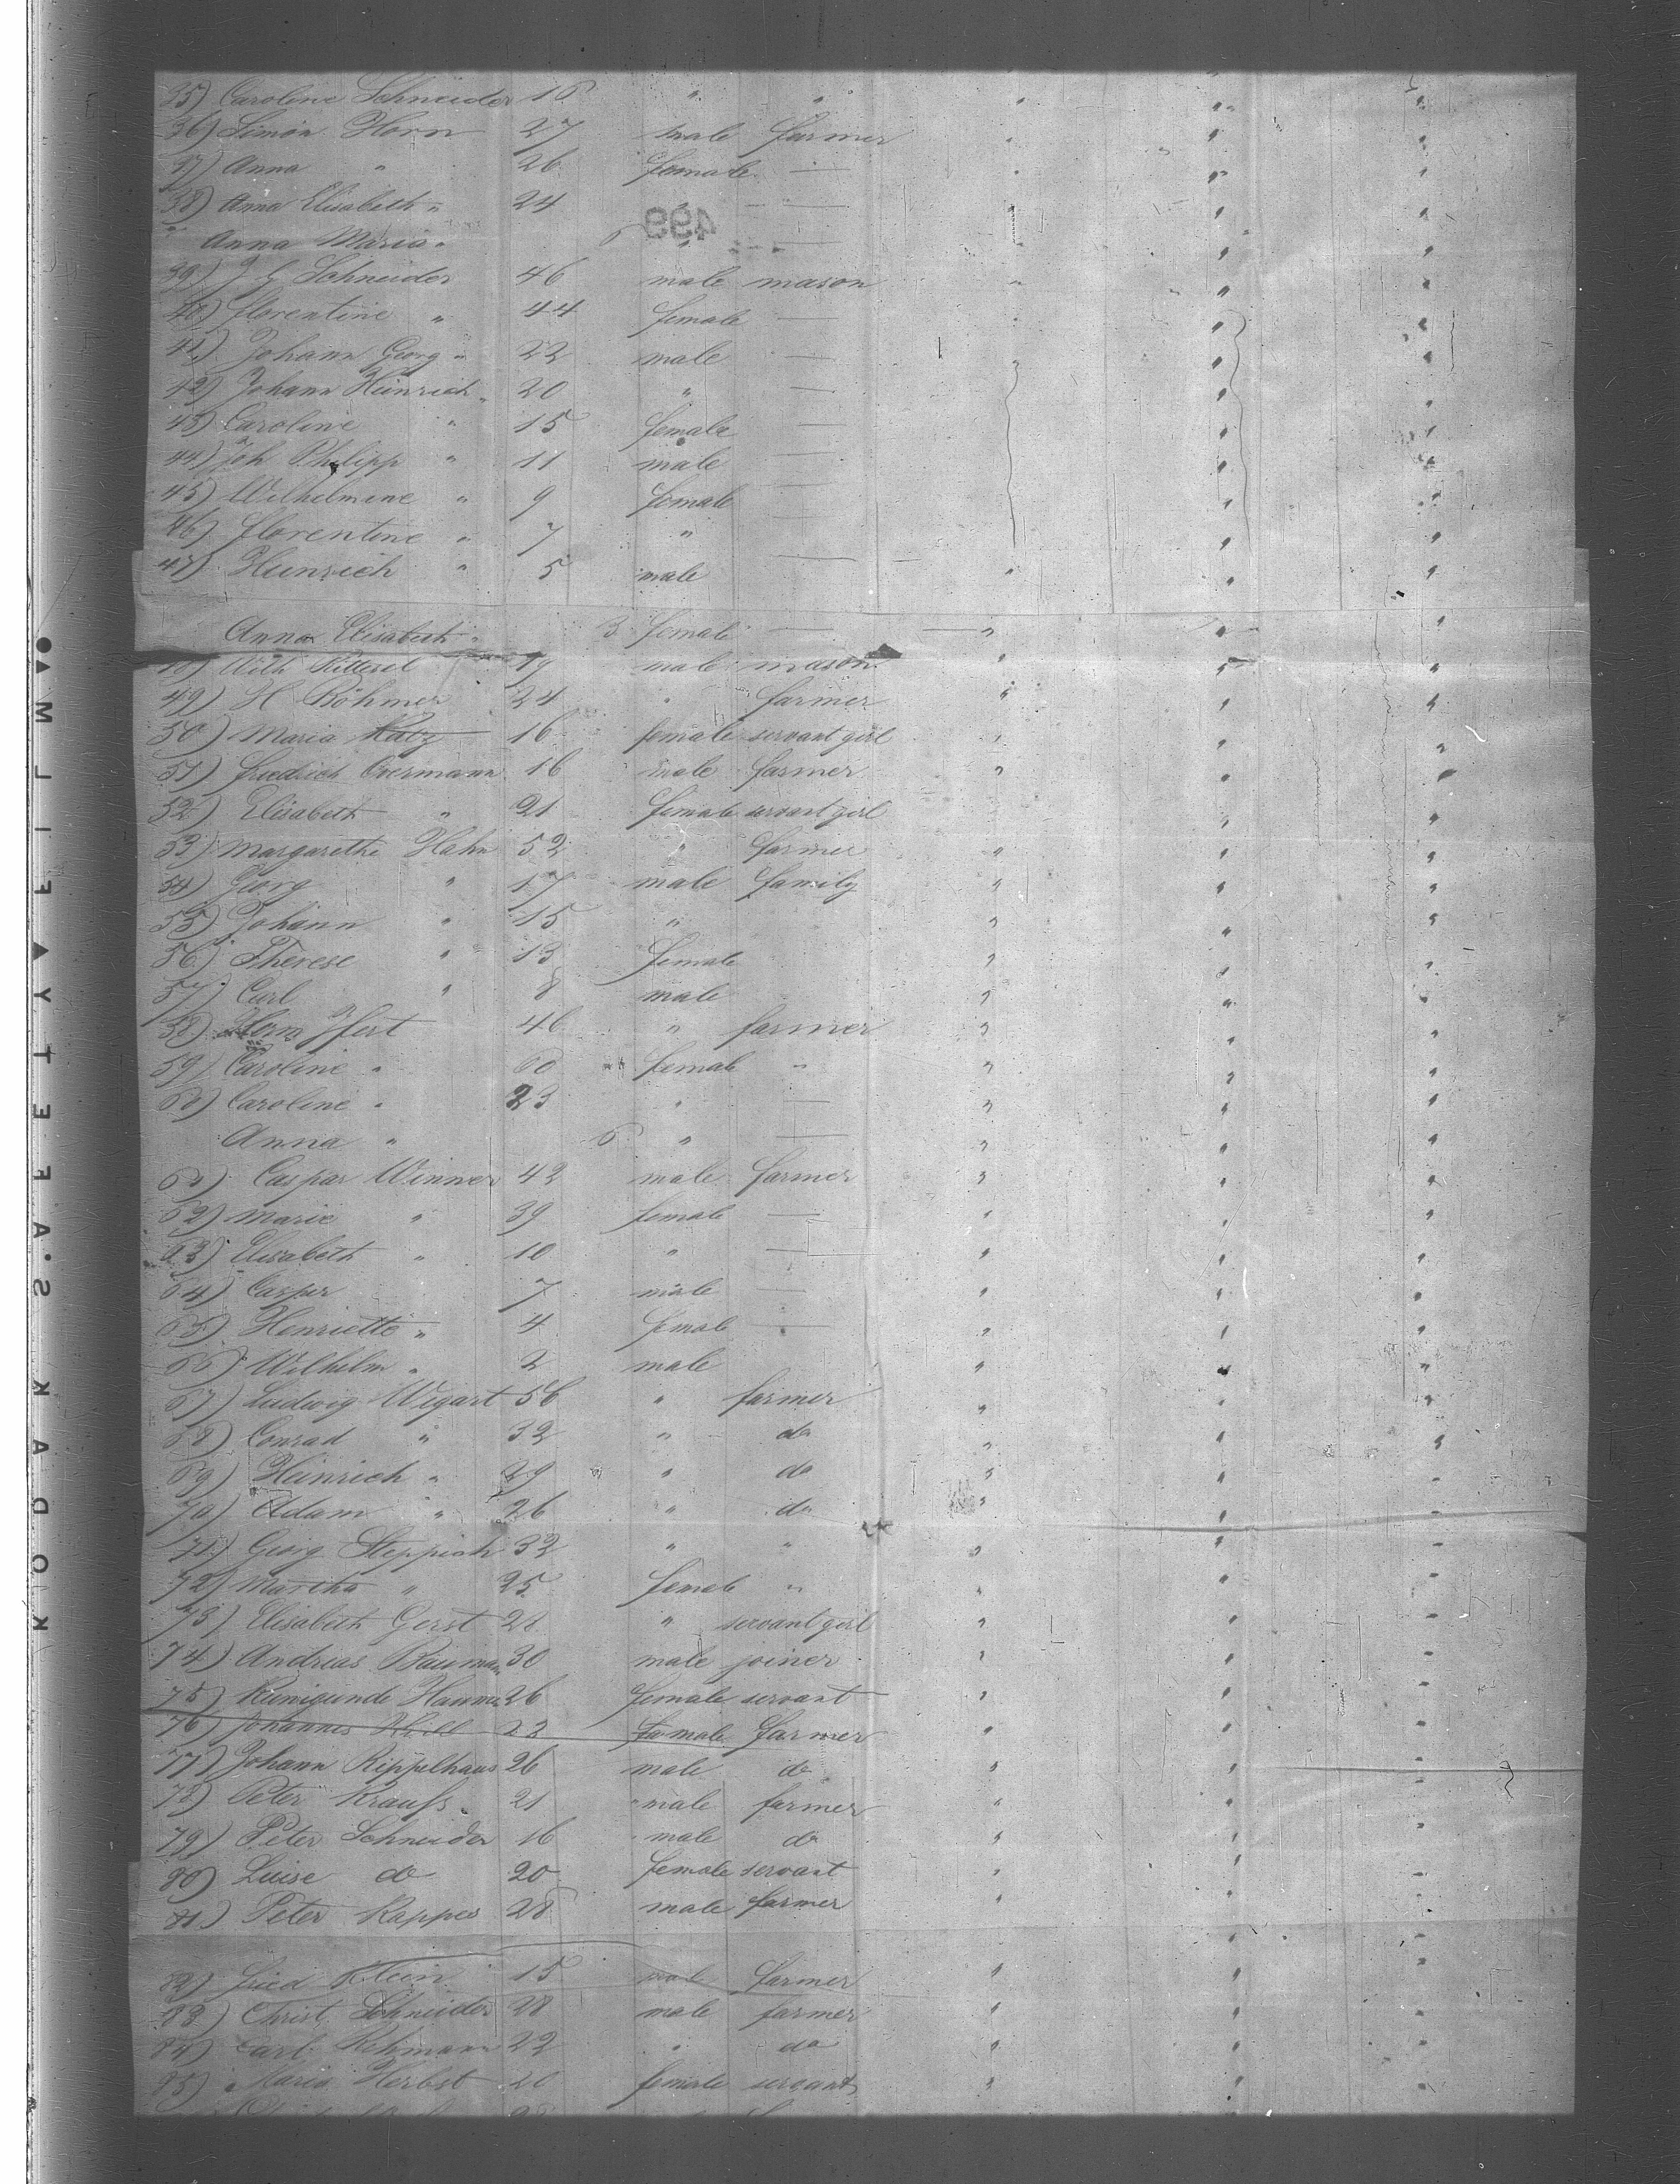 35) Caroline Schneider 16 " " " " "
36) Simon Horn 27 male farmer " " "
37) Anna " 26 female — " " "
38) Anna Elisabeth " 24 " — " " "
Anna Maria " 6 " — " "
39) J G Schneider 46 male mason " " "
40) Florentine " 44 female — " " "
41) Johann Georg " 22 male — " "
42) Johann Heinrich " 20 " — " "
43) Caroline " 15 female — " "
44) Joh Philipp " 11 male — " "
45) Wilhelmine " 9 female — " "
46) Florentine " 7 " — " "
47) Heinrich " 5 male — " " "
Anna Elisabeth " 3 female — " " "
48) Wilh 19 male mason " " "
49) H Böhmer 24 " farmer " " "
50) Maria 16 female servant girl " " "
51) Friedrich Overmann 16 male farmer " " "
52) Elisabeth " 21 female servant girl " "
53) Margarethe Hahn 52 " farmer " " "
54) Georg " 17 male family " " "
55) Johann " 15 " " " "
56) Therese " 13 female " " "
57) Carl " 8 male " " "
58) 46 " farmer " " "
59) Caroline " female " " " "
60) Caroline " 23 " — " " "
Anna " 6 " — " " "
61) Caspar Winner 42 male farmer " " "
62) Marie " 39 female — " " "
63) Elisabeth " 10 " — " " "
64) Casper 7 male — " " "
65) Henriette " 4 female — " " "
66) Wilhelm " 2 male " " "
67) Ludwig Wigart 56 " farmer " " "
68) Conrad " 32 " do " " "
69) Heinrich " 29 " do " " "
70) Adam " 26 " do " " "
71) Georg Steppich 32 " " " " "
72) Martha " 25 female " " " "
73) Elisabeth Gerst 28 " servant girl " " "
74) Andreas Bauman 30 male joiner " " "
75) Kunigunde 26 female servant " " "
76) Johannes 22 female farmer " " "
77) Johann Rippelhaus 26 male do " " "
78) Peter Krauß 21 male farmer " " "
79) Peter Schneider 16 male do " " "
80) Luise do 20 female servant " " "
81) Peter Kappes 28 male farmer " " "
82) Fried Klein 15 male farmer " " "
83) Christ Schneider 28 male farmer " " "
84) Carl Rehmann 22 " do " " "
85) Maria Herbst 20 female servant " " "
KODAK·S·A·F·E·T·Y ▲ F I L M